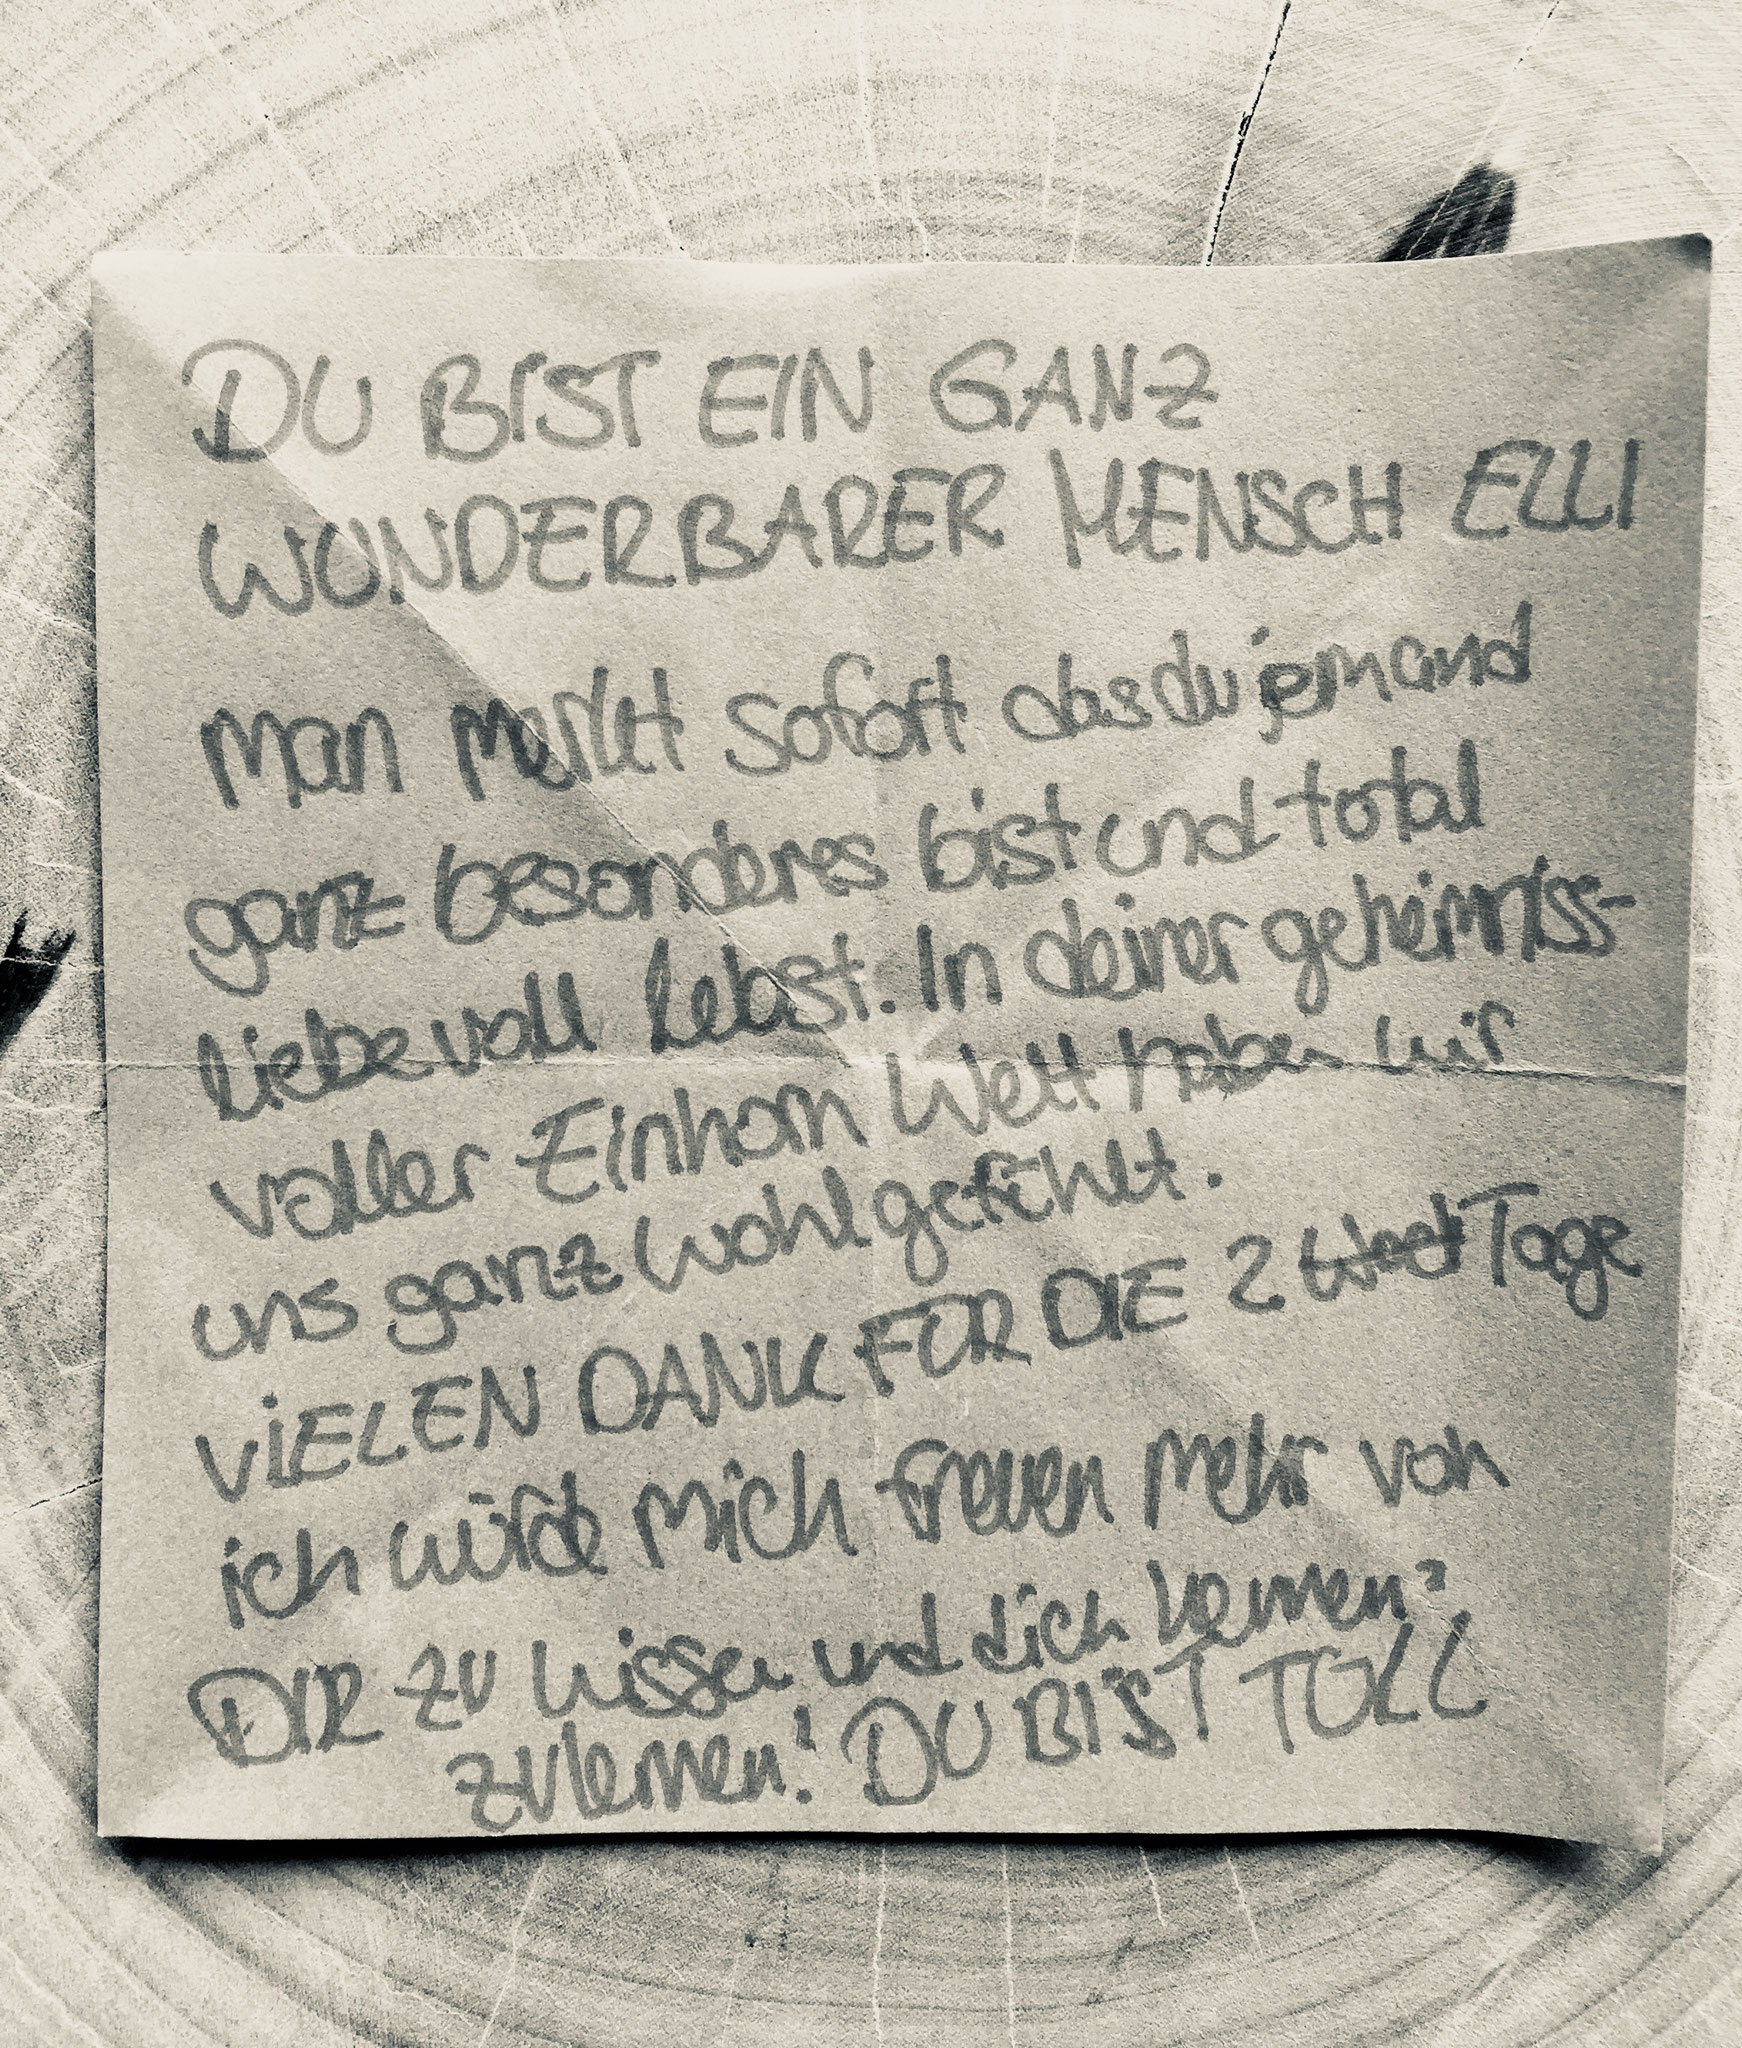 DU BIST EIN GANZ
WUNDERBARER MENSCH ELLI
Man merkt sofort das du jemand
ganz besonderes bist und total
liebevoll lebst. In deiner geheimniss-
voller Einhorn Welt haben wir
uns ganz wohl gefühlt.
VIELEN DANK FÜR DIE 2 Tage
ich würde mich freuen mehr von
DIR zu wissen und dich kennen
zulernen! DU BIST TOLL